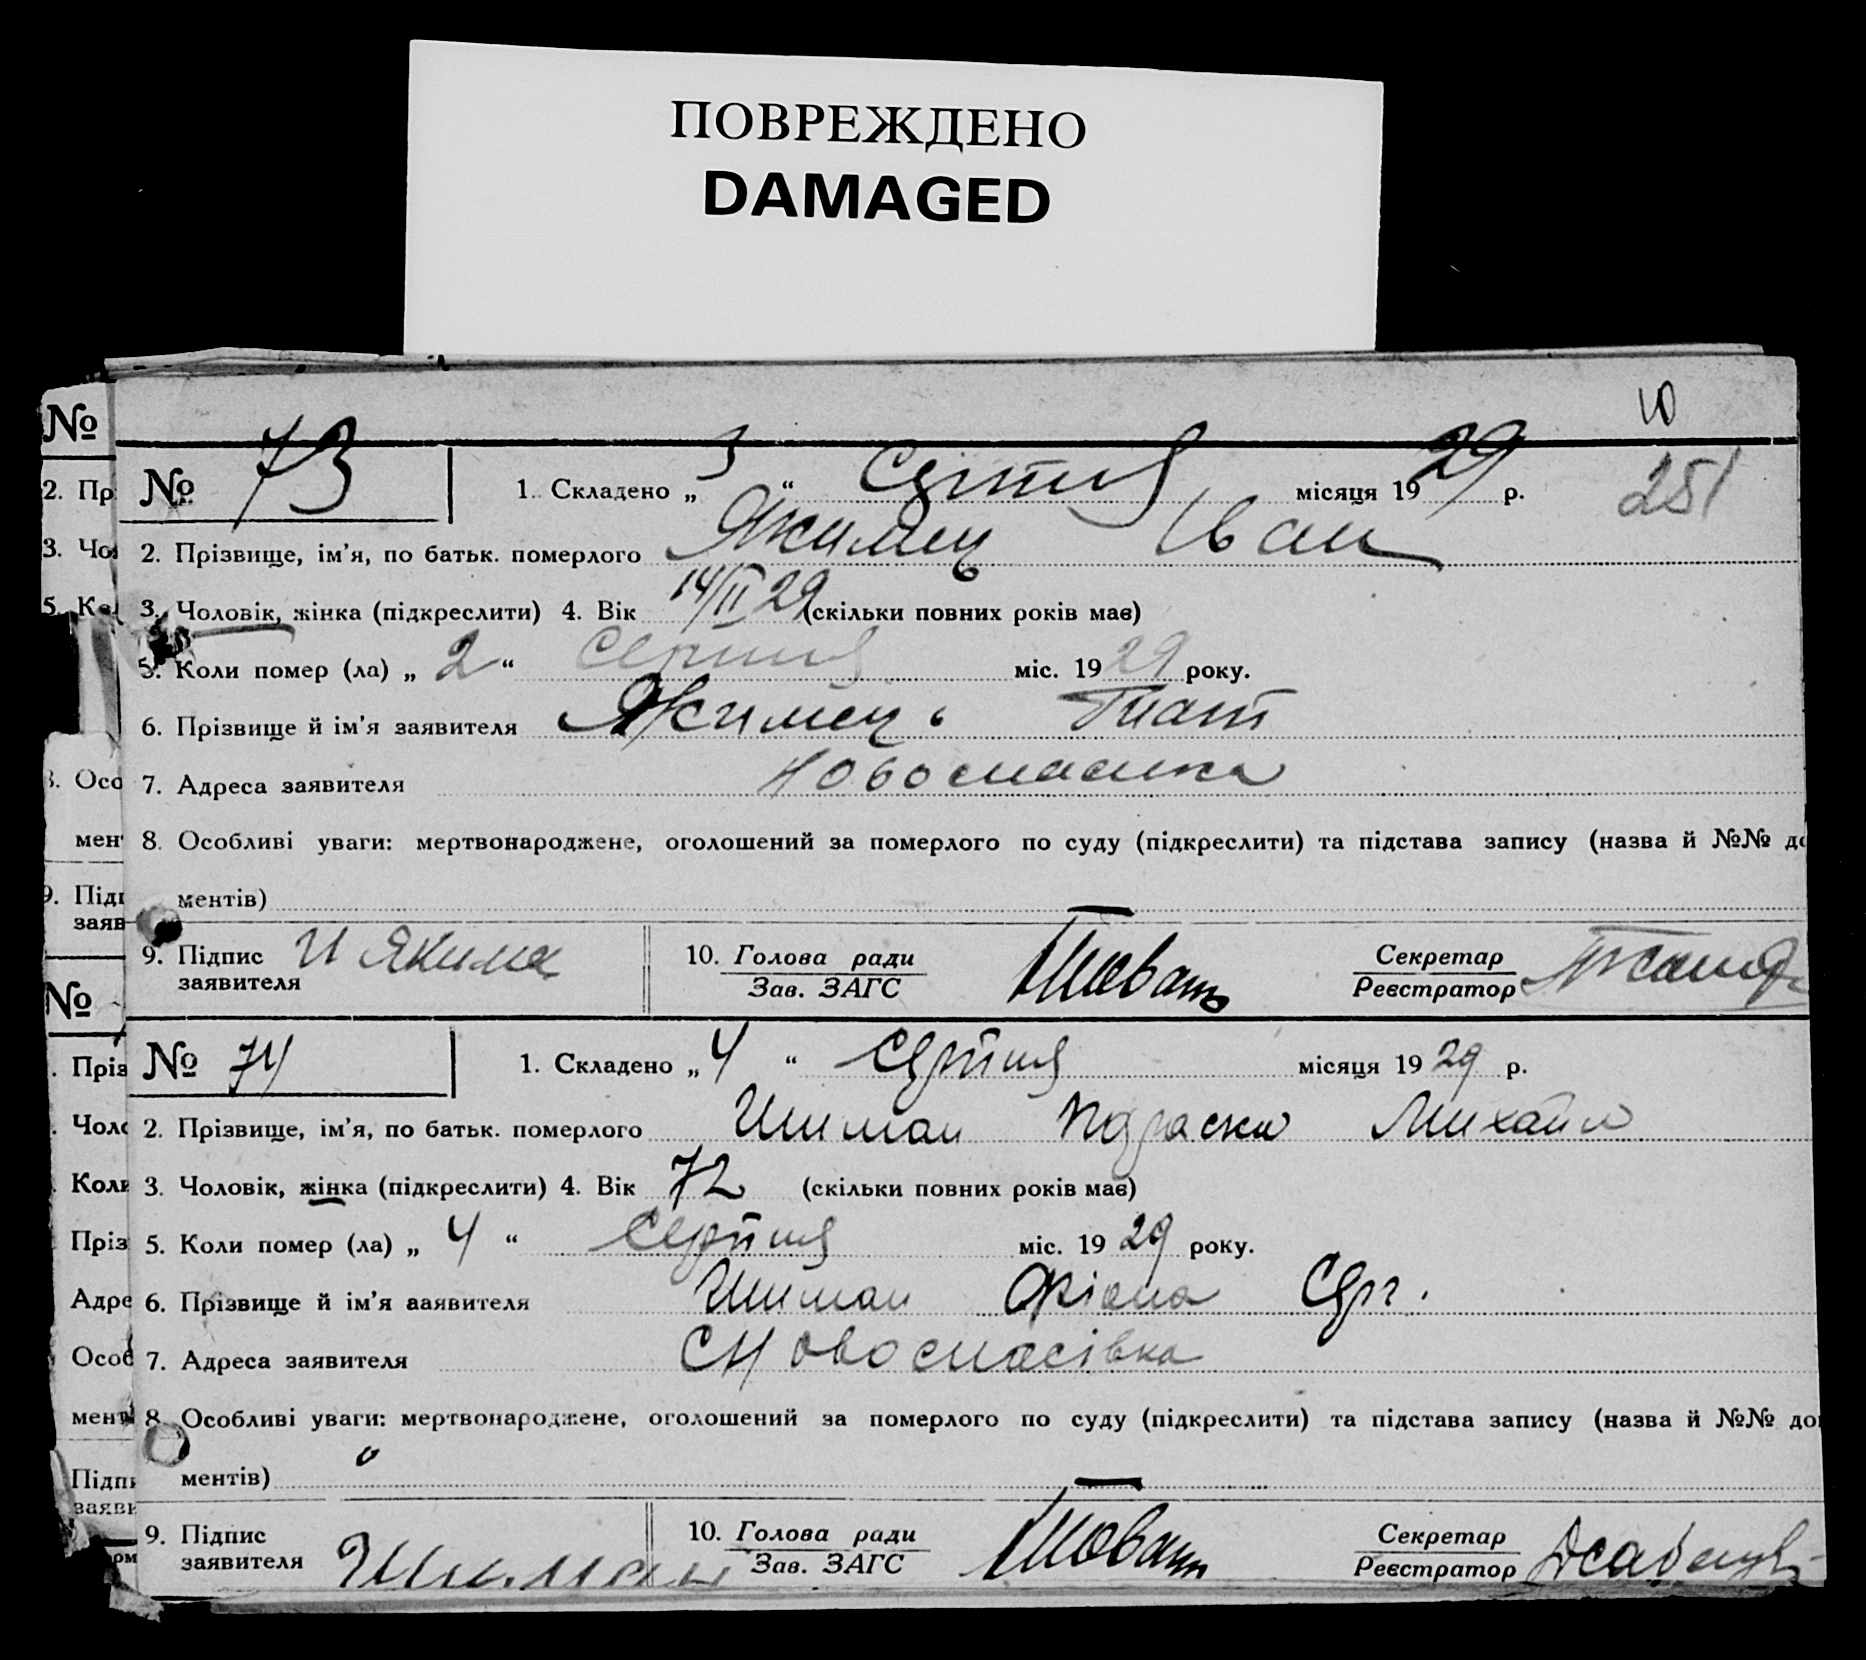 ПОВРЕЖДЕНО
DAMAGED
10
№ 73 1. Складено „ 3 “ Серпня місяця 1929 р. 251
2. Прізвище, ім'я, по батьк. померлого Якимец Іван
3. Чоловік, жінка (підкреслити) 4. Вік 14/II 29 (скільки повних років має)
5. Коли помер (ла) „ 2 “ Серпня міс. 1929 року.
6. Прізвище й ім'я заявителя Якимець Гнат
7. Адреса заявителя
8. Особливі уваги: мертвонароджене, оголошений за померлого по суду (підкреслити) та підстава запису (назва й №№ до
ментів)
9. Підпис заявителя И Якима 10. Голова ради Зав. ЗАГС Секретар Реєстратор
№ 74 1. Складено „ 4 “ Серпня місяця 1929 р.
2. Прізвище, ім'я, по батьк. померлого Шиман Параска Михайл
3. Чоловік, жінка (підкреслити) 4. Вік 72 (скільки повних років має)
5. Коли помер (ла) „ 4 “ Серпня міс. 1929 року.
6. Прізвище й ім'я заявителя Шиман Серг.
7. Адреса заявителя С Новоспасівка
8. Особливі уваги: мертвонароджене, оголошений за померлого по суду (підкреслити) та підстава запису (назва й №№ до
ментів)
9. Підпис заявителя Шиман 10. Голова ради Зав. ЗАГС Секретар Реєстратор
№
2. Пр
3. Чо
5. К
Осо
мен
9. Підп
заяв
№
Пріз
Чоло
Коли
Пріз
Адре
Особ
мент
Підпи
заяви